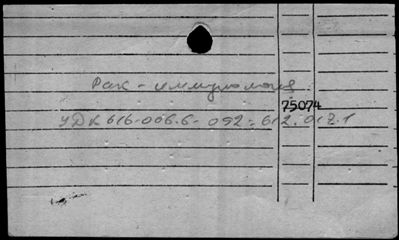 Рак - иммунология
75074
УДК 616-006.6-092:612.017.1